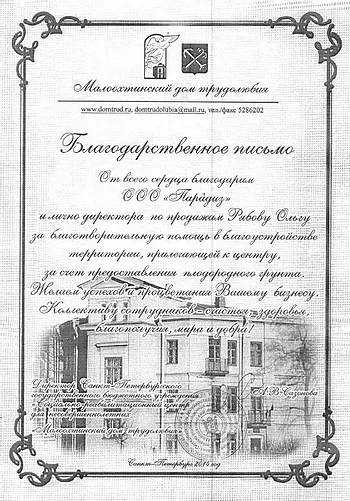 Малоохтинский дом трудолюбия
www.domtrud.ru, domtrudolubia@mail.ru, тел./факс 5286202
Благодарственное письмо
От всего сердца благодарим
ООО «Парадиз»
и лично директора по продажам Рябову Ольгу
за благотворительную помощь в благоустройстве
территории, прилегающей к центру,
за счет предоставления плодородного грунта.
Желаем успехов и процветания Вашему бизнесу.
Коллективу сотрудников - счастья, здоровья,
благополучия, мира и добра!
Директор Санкт-Петербургского
государственного бюджетного учреждения
социально-реабилитационный центр
для несовершеннолетних
«Малоохтинский дом трудолюбия»
А.В.Сазонова
Санкт-Петербург, 2014 год